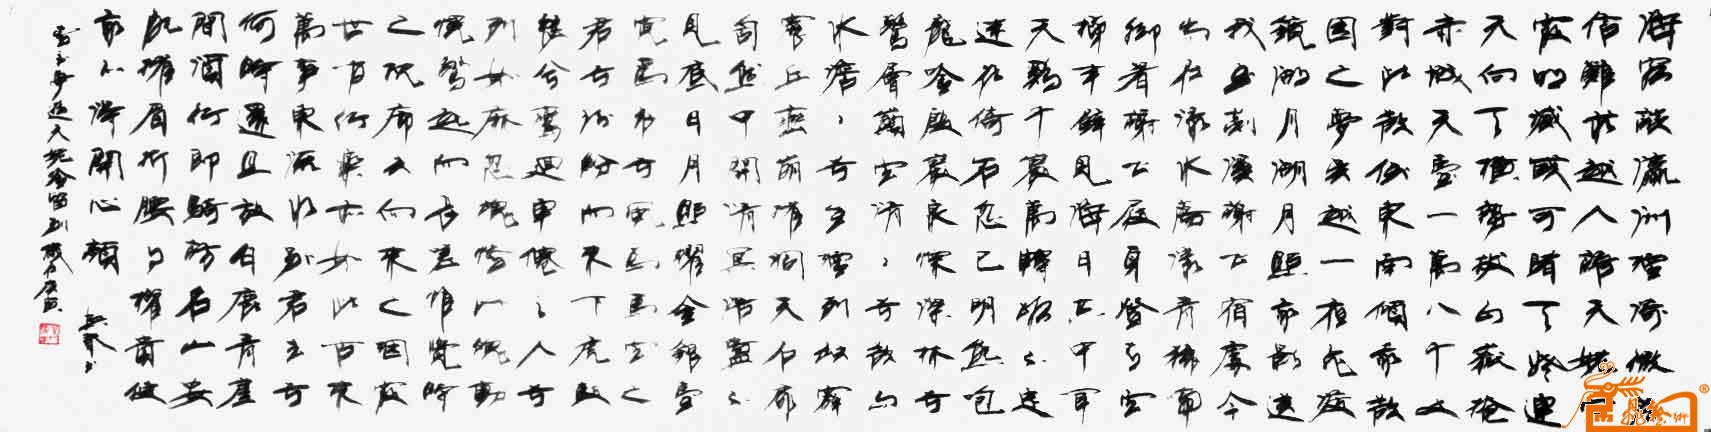 海客談瀛洲煙濤微
信難求越人語天姥
霞明滅或可睹天姥連
天向天橫勢拔五嶽掩
赤城天臺一萬八千丈
對此欲倒東南傾我欲
因之夢吳越一夜飛度
鏡湖月湖月照我影送
我至剡溪謝公宿處今
尚在淥水蕩漾青猿啼
腳著謝公屐身登青雲
梯半壁見海日空中聞
天雞千巖萬轉路不定
迷花倚石忽已暝熊咆
龍吟殷巖泉慄深林兮
驚層巔雲青青兮欲雨
水澹澹兮生煙列缺霹
靂丘巒崩摧洞天石扉
訇然中開青冥浩蕩不
見底日月照耀金銀臺
霓為衣兮風為馬雲之
君兮紛紛而來下虎鼓
瑟兮鸞迴車仙之人兮
列如麻忽魂悸以魄動
恍驚起而長嗟惟覺時
之枕席失向來之煙霞
世間行樂亦如此古來
萬事東流水別君去兮
何時還且放白鹿青崖
間須行即騎訪名山安
能摧眉折腰事權貴使
我不得開心顏